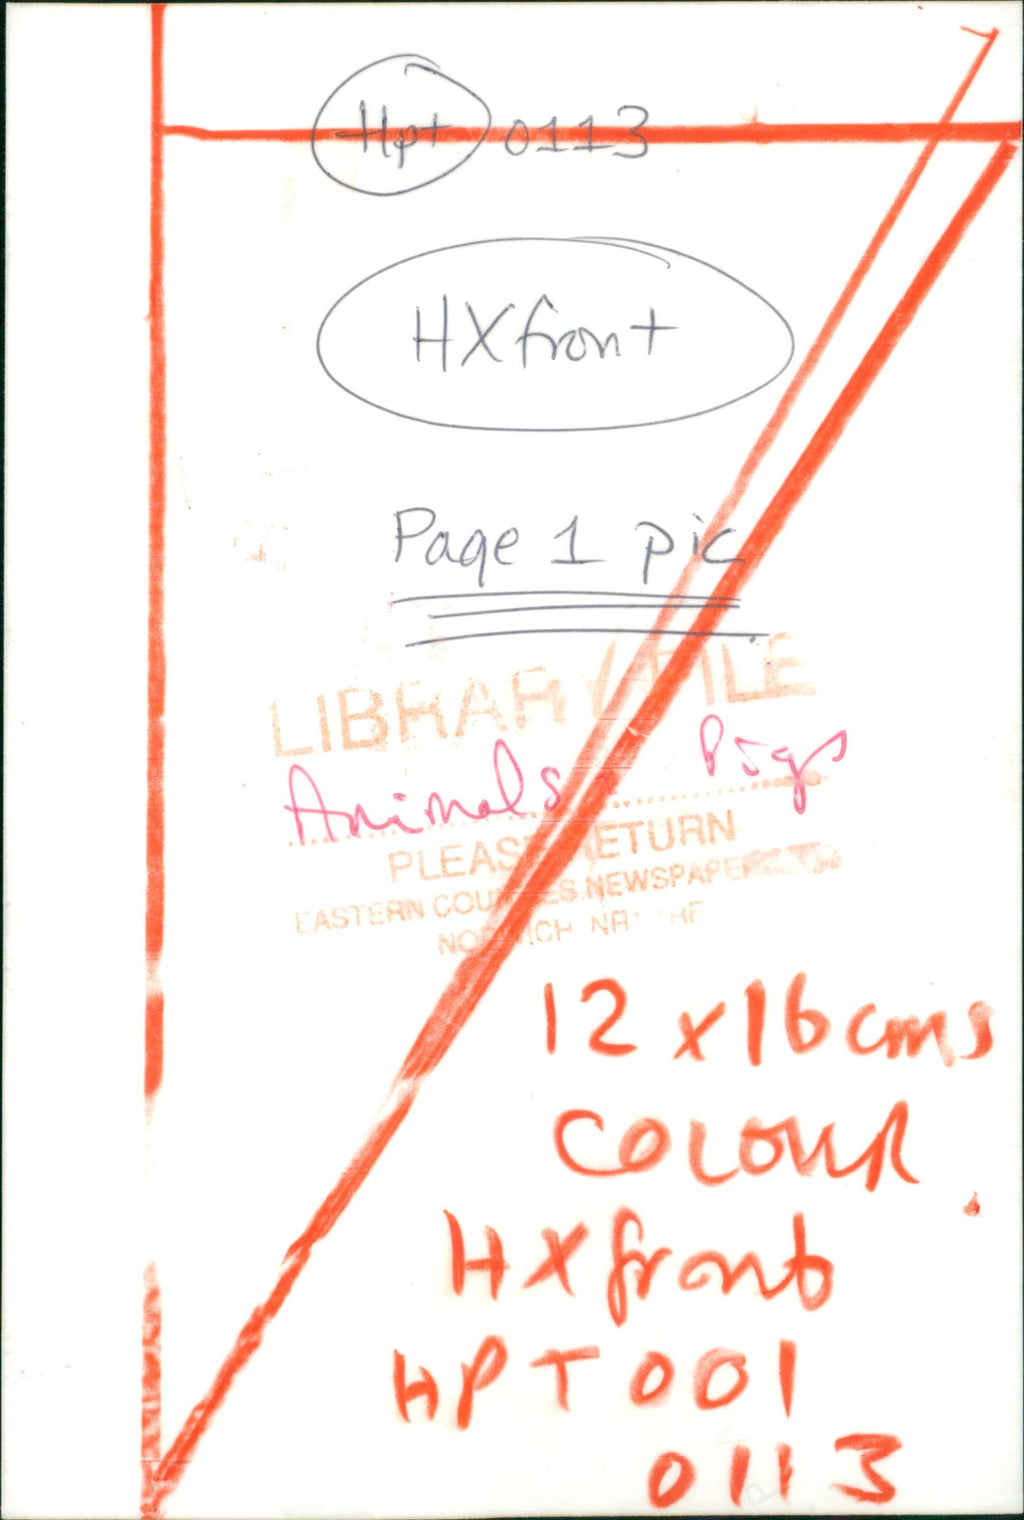 Hpt 0113
HXfront
Page 1 pic
LIBRARY FILE
Animals Pigs
PLEASE RETURN
EASTERN COUNTIES NEWSPAPERS
NORWICH NR1
12 x 16 cms
COLOUR
HXfront
HPT 001
0113